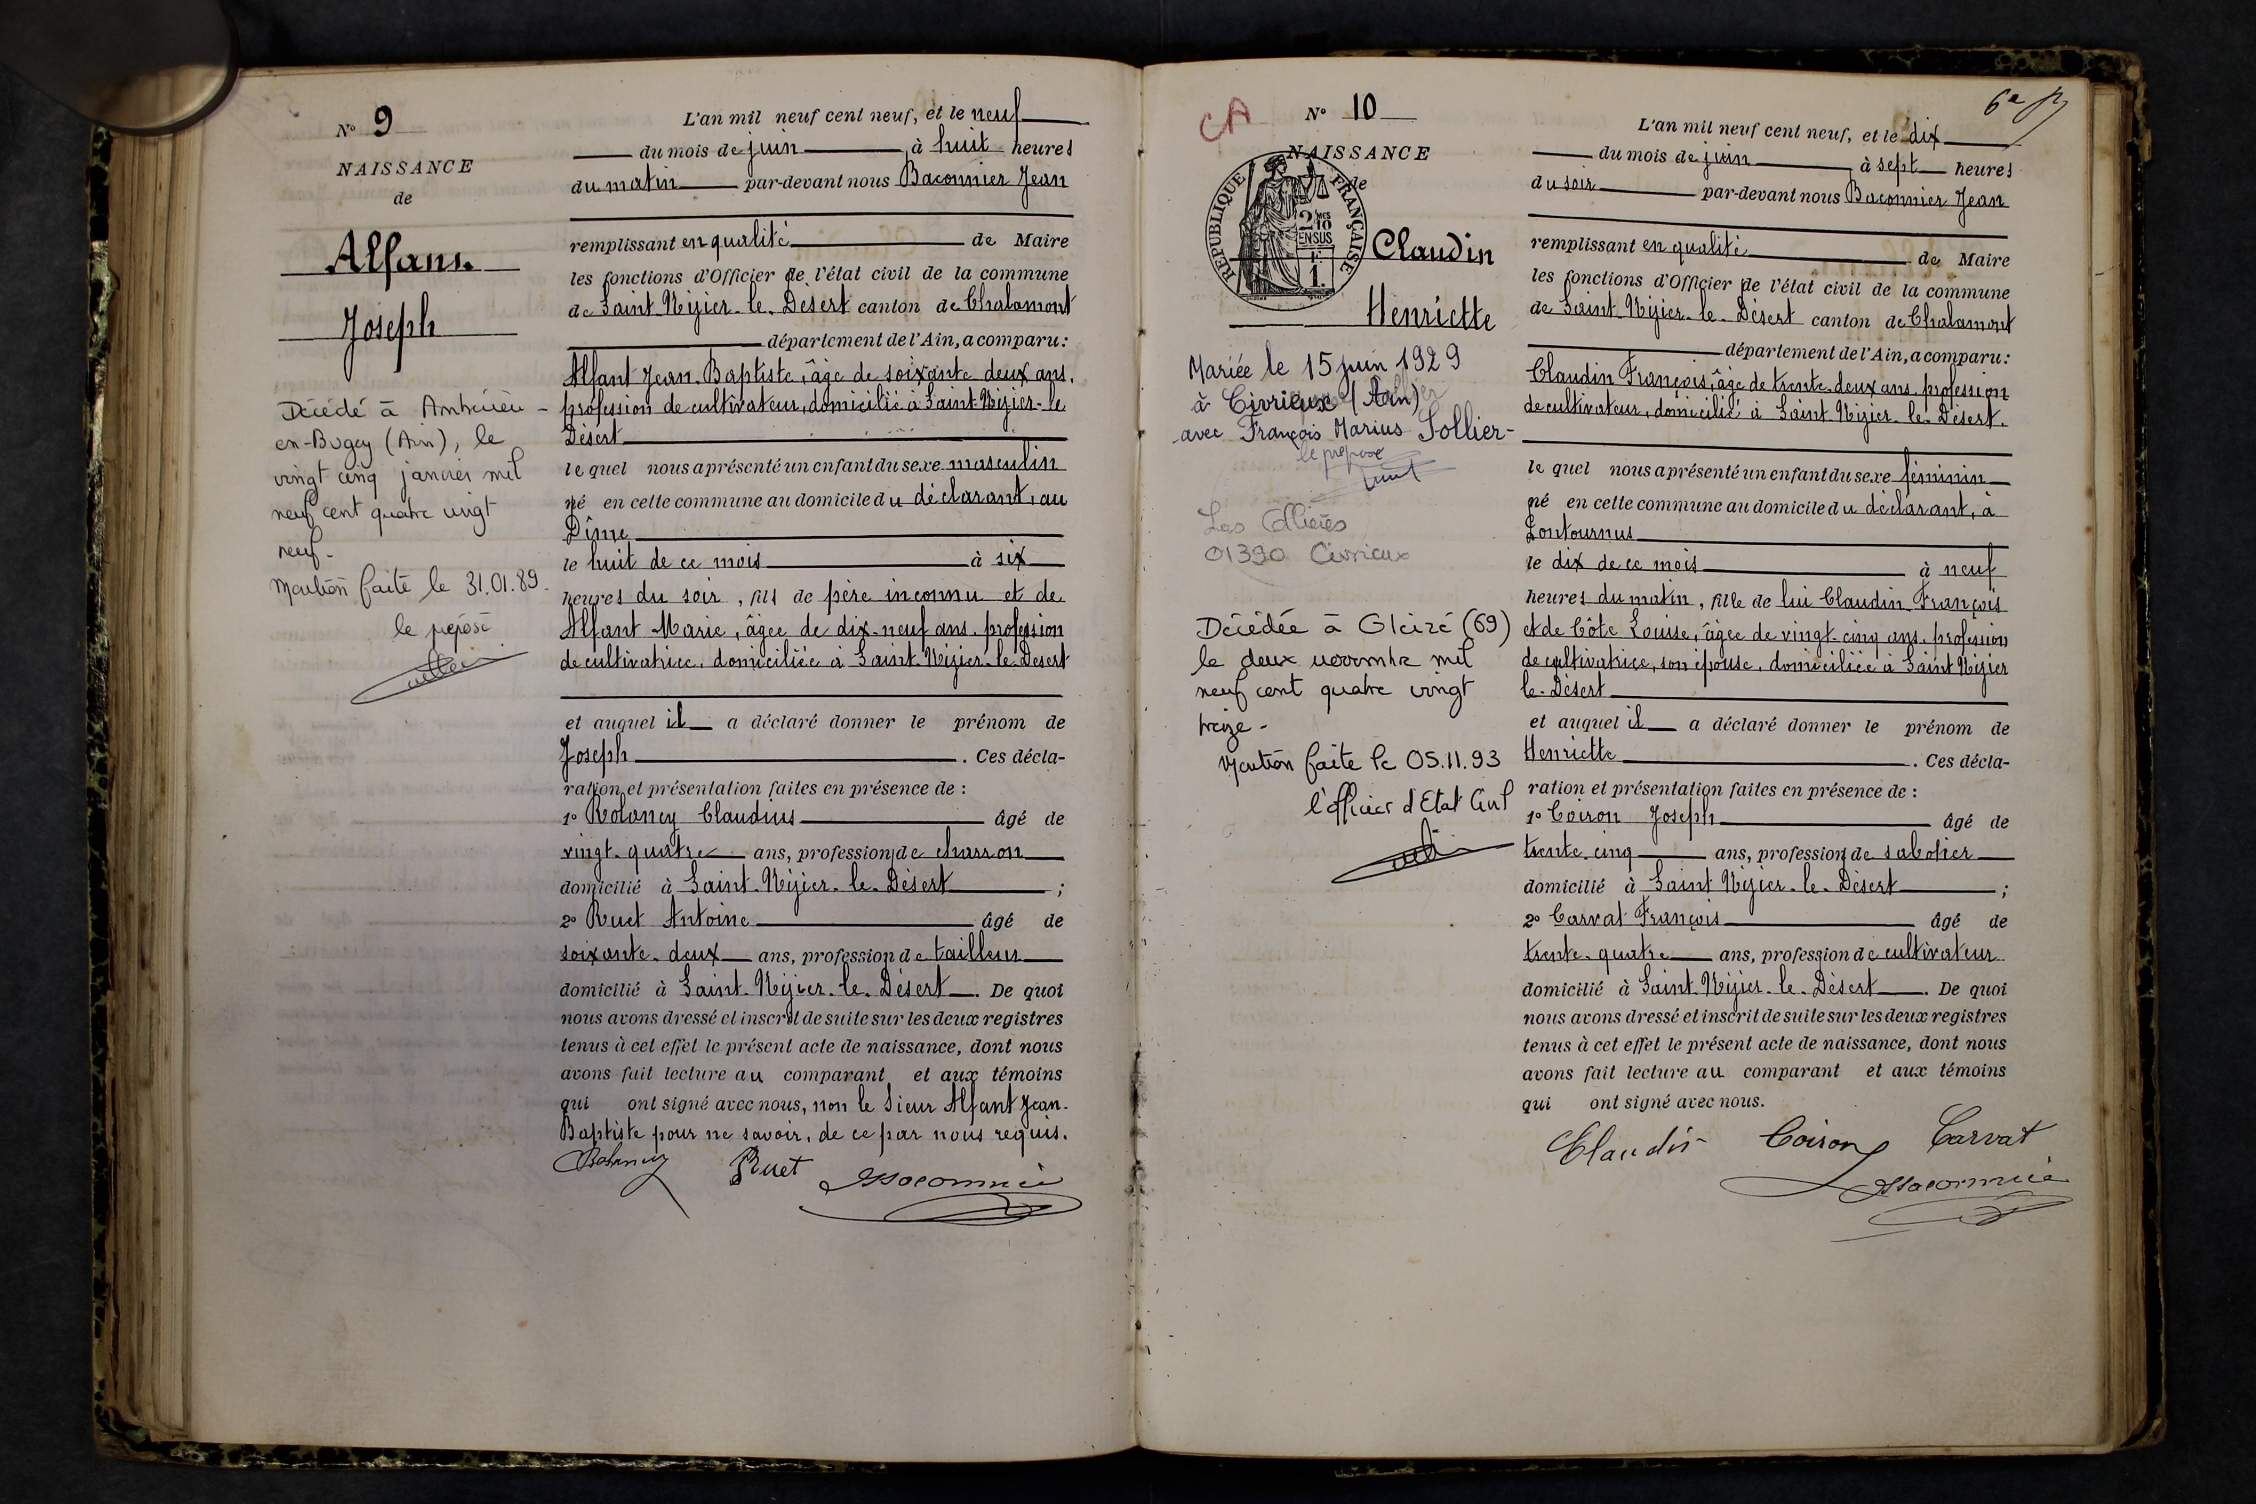 N° 9
NAISSANCE
de
Alfant
Joseph
Décédé à Ambérieu-
en-Bugey (Ain), le
vingt cinq janvier mil
neuf cent quatre vingt
neuf-
Mention faite le 31.01.89.
le préposé
L'an mil neuf cent neuf, et le neuf
du mois de juin à huit heures
du matin par-devant nous Baconnier Jean
remplissant en qualité de Maire
les fonctions d'Officier de l'état civil de la commune
de Saint-Nizier-le-Désert canton de Chalamont
département de l'Ain, a comparu:
Alfant Jean-Baptiste, âgé de soixante-deux ans,
profession de cultivateur, domicilié à Saint-Nizier-le
Désert
lequel nous a présenté un enfant du sexe masculin
né en cette commune au domicile du déclarant, au
Dîme
le huit de ce mois à six
heures du soir, fils de père inconnu et de
Alfant Marie, âgée de dix-neuf ans, profession
de cultivatrice, domiciliée à Saint-Nizier-le-Désert
et auquel il a déclaré donner le prénom de
Joseph. Ces décla-
ration et présentation faites en présence de :
1° Bolomey Claudius âgé de
vingt-quatre ans, profession de charron
domicilié à Saint-Nizier-le-Désert ;
2° Ruet Antoine âgé de
soixante-deux ans, profession de tailleur
domicilié à Saint-Nizier-le-Désert. De quoi
nous avons dressé et inscrit de suite sur les deux registres
tenus à cet effet le présent acte de naissance, dont nous
avons fait lecture au comparant et aux témoins
qui ont signé avec nous, non le sieur Alfant Jean-
Baptiste pour ne savoir, de ce par nous requis.
Ruet Baconnier
CA
N° 10
NAISSANCE
de
RÉPUBLIQUE FRANÇAISE
2/10 EN SUS
1
Claudin
Henriette
Mariée le 15 juin 1929
à Civrieux (Ain)
avec François Marius Sollier-
le préposé
01390 Civrieux
Décédée à Gleizé (69)
le deux novembre mil
neuf cent quatre vingt
treize-
Mention faite le 05.11.93
l'officier d'Etat Civil
L'an mil neuf cent neuf, et le dix
du mois de juin à sept heures
du soir par-devant nous Baconnier Jean
remplissant en qualité de Maire
les fonctions d'Officier de l'état civil de la commune
de Saint-Nizier-le-Désert canton de Chalamont
département de l'Ain, a comparu:
Claudin François, âgé de trente-deux ans, profession
de cultivateur, domicilié à Saint-Nizier-le-Désert.
lequel nous a présenté un enfant du sexe féminin
né en cette commune au domicile du déclarant, à
Lontournus
le dix de ce mois à neuf
heures du matin, fille de lui Claudin François
et de Côte Louise, âgée de vingt-cinq ans, profession
de cultivatrice, son épouse, domiciliée à Saint Nizier
le-Désert
et auquel il a déclaré donner le prénom de
Henriette. Ces décla-
ration et présentation faites en présence de :
1° Coiron Joseph âgé de
trente-cinq ans, profession de sabotier
domicilié à Saint-Nizier-le-Désert ;
2° Carvat François âgé de
trente-quatre ans, profession de cultivateur
domicilié à Saint-Nizier-le-Désert. De quoi
nous avons dressé et inscrit de suite sur les deux registres
tenus à cet effet le présent acte de naissance, dont nous
avons fait lecture au comparant et aux témoins
qui ont signé avec nous.
Claudin Coiron Carvat
Baconnier